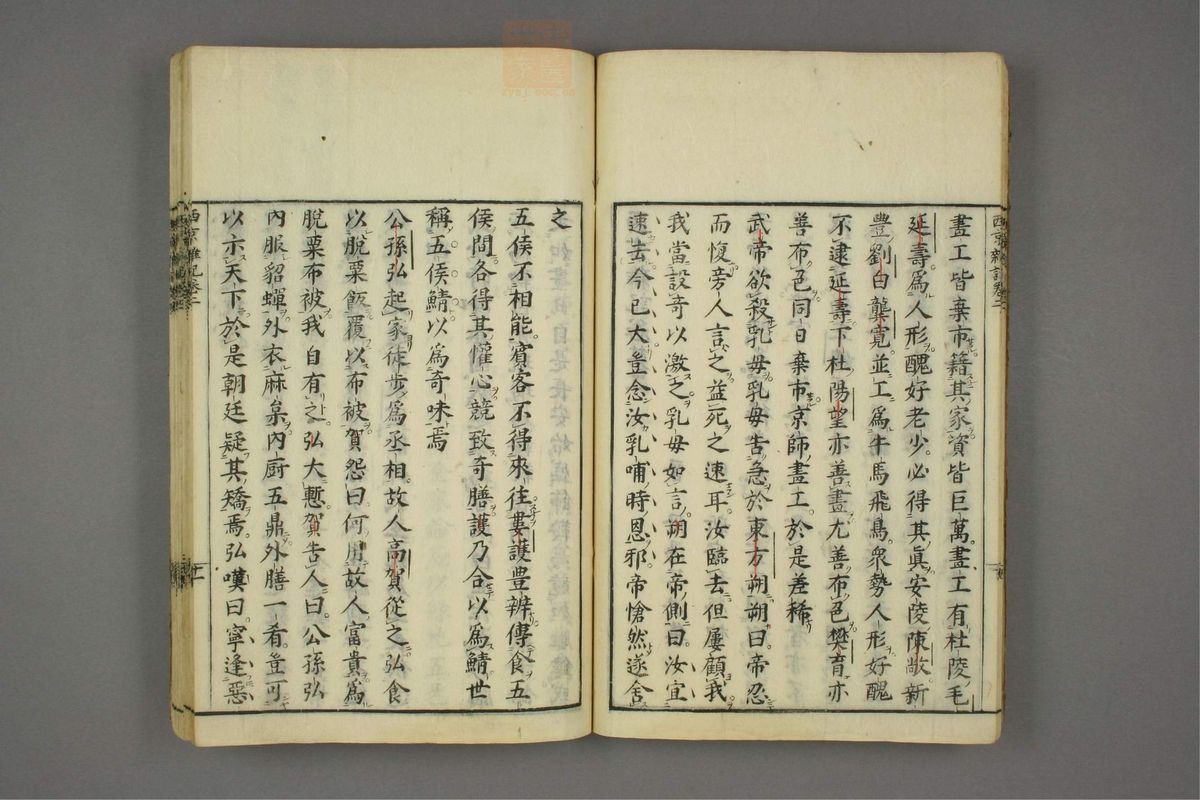 畫工皆棄市籍其家資皆巨萬畫工有杜陵毛
延壽爲人形醜好老少必得其眞安陵陳敞新
豐劉白龔寛並工爲牛馬飛鳥衆勢人形好醜
不逮延壽下杜陽望亦善畫尤善布色樊育亦
善布色同日棄市京師畫工於是差稀
武帝欲殺乳母乳母吿急於東方朔朔曰帝忍
而愎旁人言之益死之速耳汝臨去但屢顧我
我當設奇以激之乳母如言朔在帝側曰汝宜
速去今已大豈念汝乳哺時恩邪帝愴然遂舍
之
五侯不相能賓客不得來往婁護豊辨傳食五
侯間各得其懽心競致奇膳護乃合以爲鯖世
稱五侯鯖以爲奇味焉
公孫弘起家徒步爲丞相故人高賀從之弘食
以脫粟飯覆以布被賀怨曰何用故人富貴爲
脫粟布被我自有之弘大慙賀吿人曰公孫弘
內服貂蟬外衣麻枲內厨五鼎外膳一肴豈可
以示天下於是朝廷疑其矯焉弘嘆曰寧逢惡